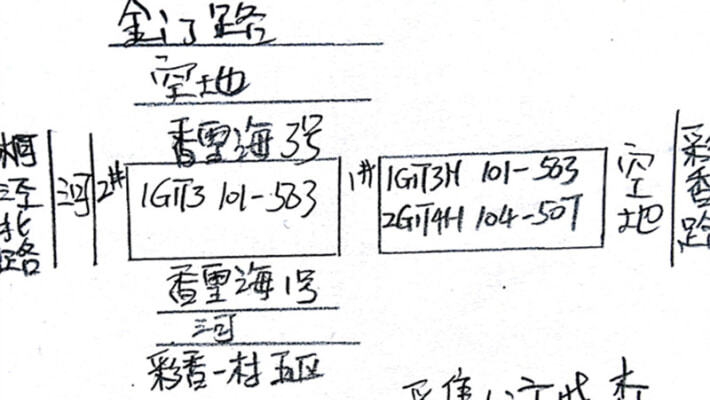 金门路
空地
香雪海3号
桐泾北路
河
2#
1GIT3 101-503
1#
1GIT3H 101-503
2GIT4H 104-507
空地
彩香路
香雪海1号
河
彩香一村五区